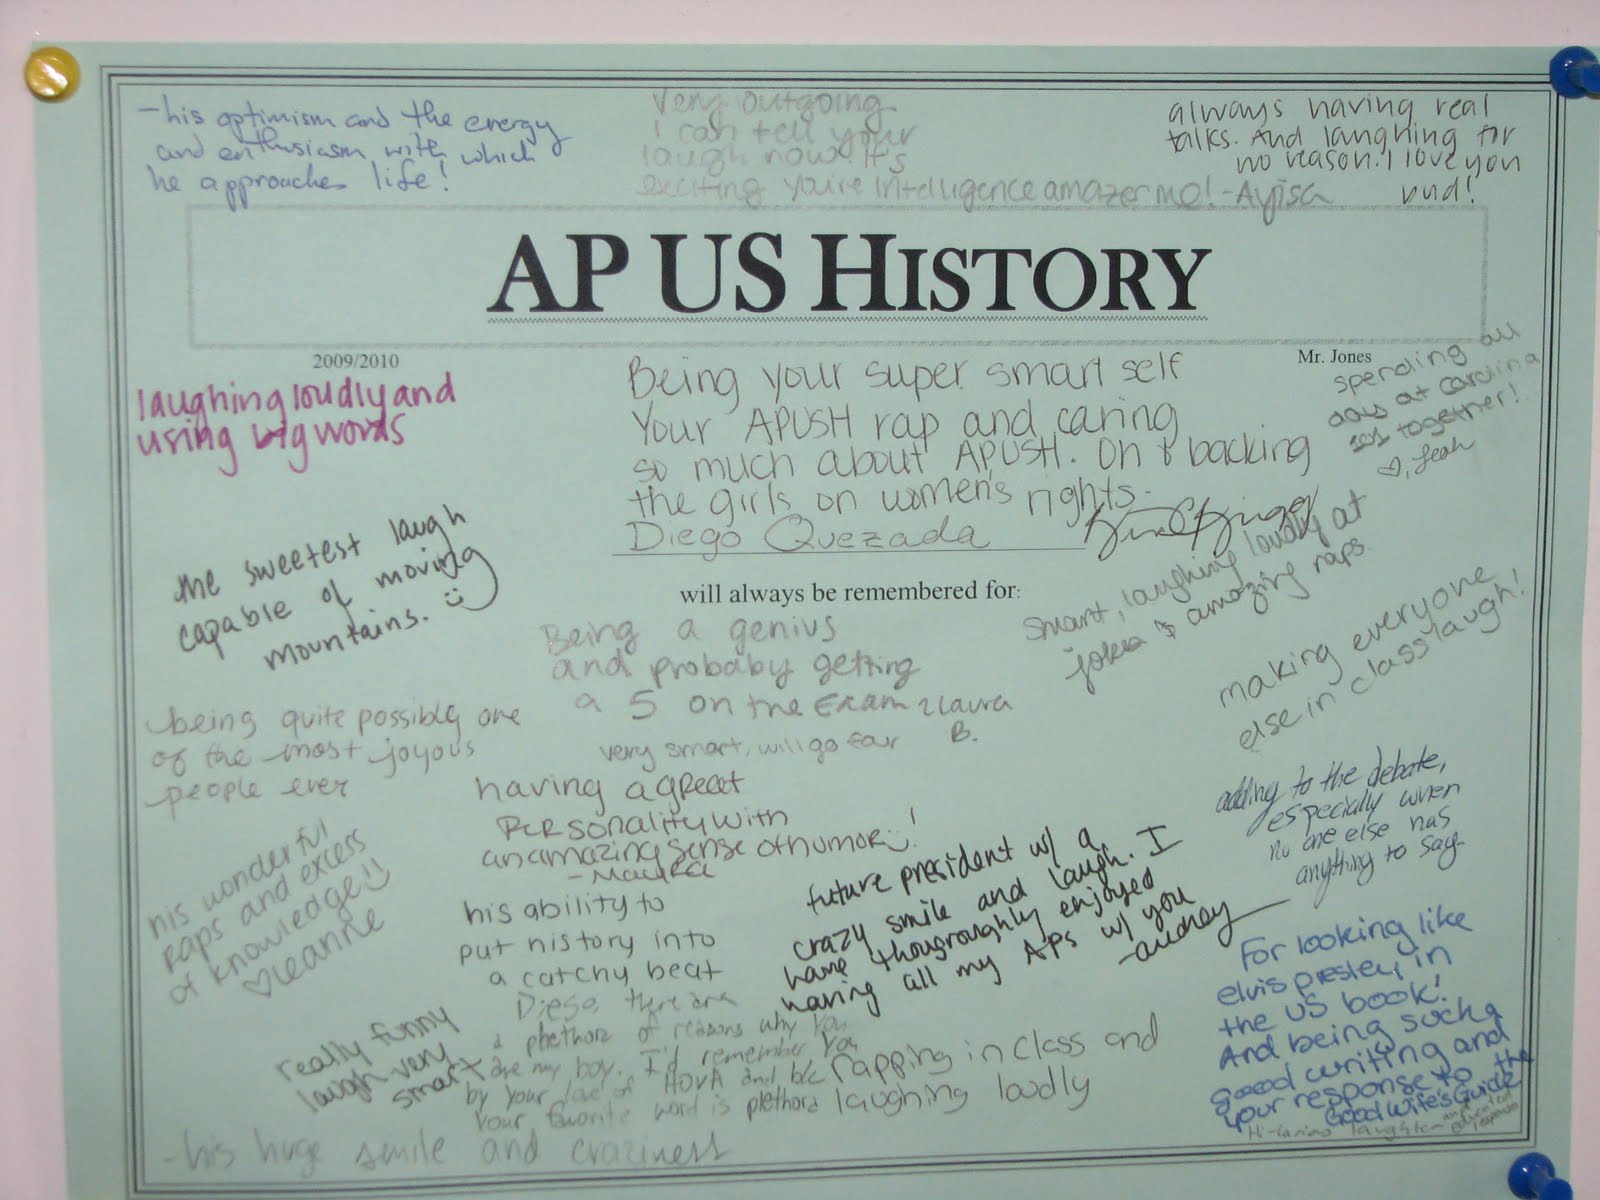 -his optimism and the energy
and enthusiasm with which
he approaches life!
Very outgoing
I can tell your
laugh now! It's
exciting you're intelligence amazes me! -Ayisa
always having real
talks. And laughing for
no reason. I love you
bud!
AP US HISTORY
2009/2010
Mr. Jones
laughing loudly and
using big words
Being your super smart self
Your APUSH rap and caring
so much about APUSH. Oh & backing
the girls on women's rights.
spending all
day at Carolina
together!
♡, Leah
Diego Quezada
will always be remembered for:
the sweetest laugh
capable of moving
mountains. :)
smart, laughing loudly at
jokes & amazing raps.
Being a genius
and probaby getting
a 5 on the Exam Laura
B.
making everyone
else in class laugh!
being quite possibly one
of the most joyous
people ever
very smart, will go far
having a great
personality with
an amazing sense of humor :)!
adding to the debate,
especially when
no one else has
anything to say-
his wonderful
raps and excess
of knowledge :)
♡leanne
his ability to
put history into
a catchy beat
future president w/ a
crazy smile and laugh. I
have thouroughly enjoyed
having all my APs w/ you
-audrey
For looking like
elvis presley, in
the US book!
And being such a
good writing and
your response to the
Good Wife's Guide
Diego, there are
a plethora of reasons why you
are my boy. I'd remember you
by your love of HOVA and b/c
your favorite word is plethora
really funny
laugh very
smart
rapping in class and
laughing loudly
-his huge smile and craziness